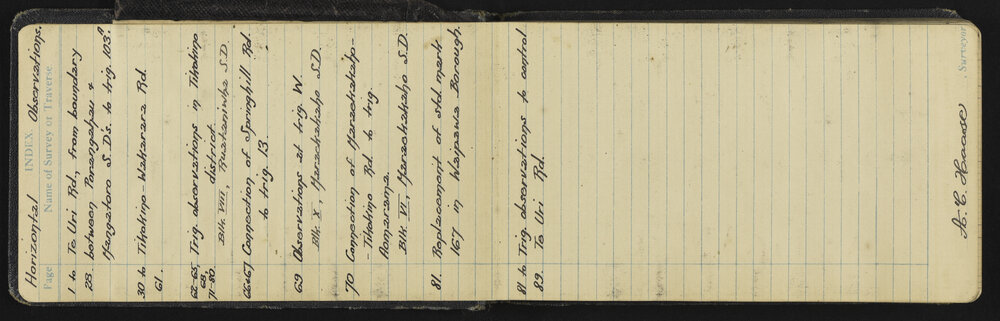 Horizontal INDEX Observations.
Page Name of Survey or Traverse
1 to Te Uri Rd., from boundary
28 between Porangahau &
Mangatoro S.D's. to trig. 103?
30 to Tikokino - Wakarara Rd.
61.
62-65, Trig. observations in Tikokino
68, district.
71-80. Blk. VIII, Ruataniwha S.D.
66&67 Connection of Springhill Rd.
to trig. 13.
69 Observations at trig. W.
Blk. X, Maraekakaho S.D.
70 Connection of Maraekakaho-
-Tikokino Rd. to trig.
Blk. VI, Maraekakaho S.D.
81. Replacement of std. mark
167 in Waipawa Borough.
81 to Trig. observations to control
89. Te Uri Rd.
Surveyor